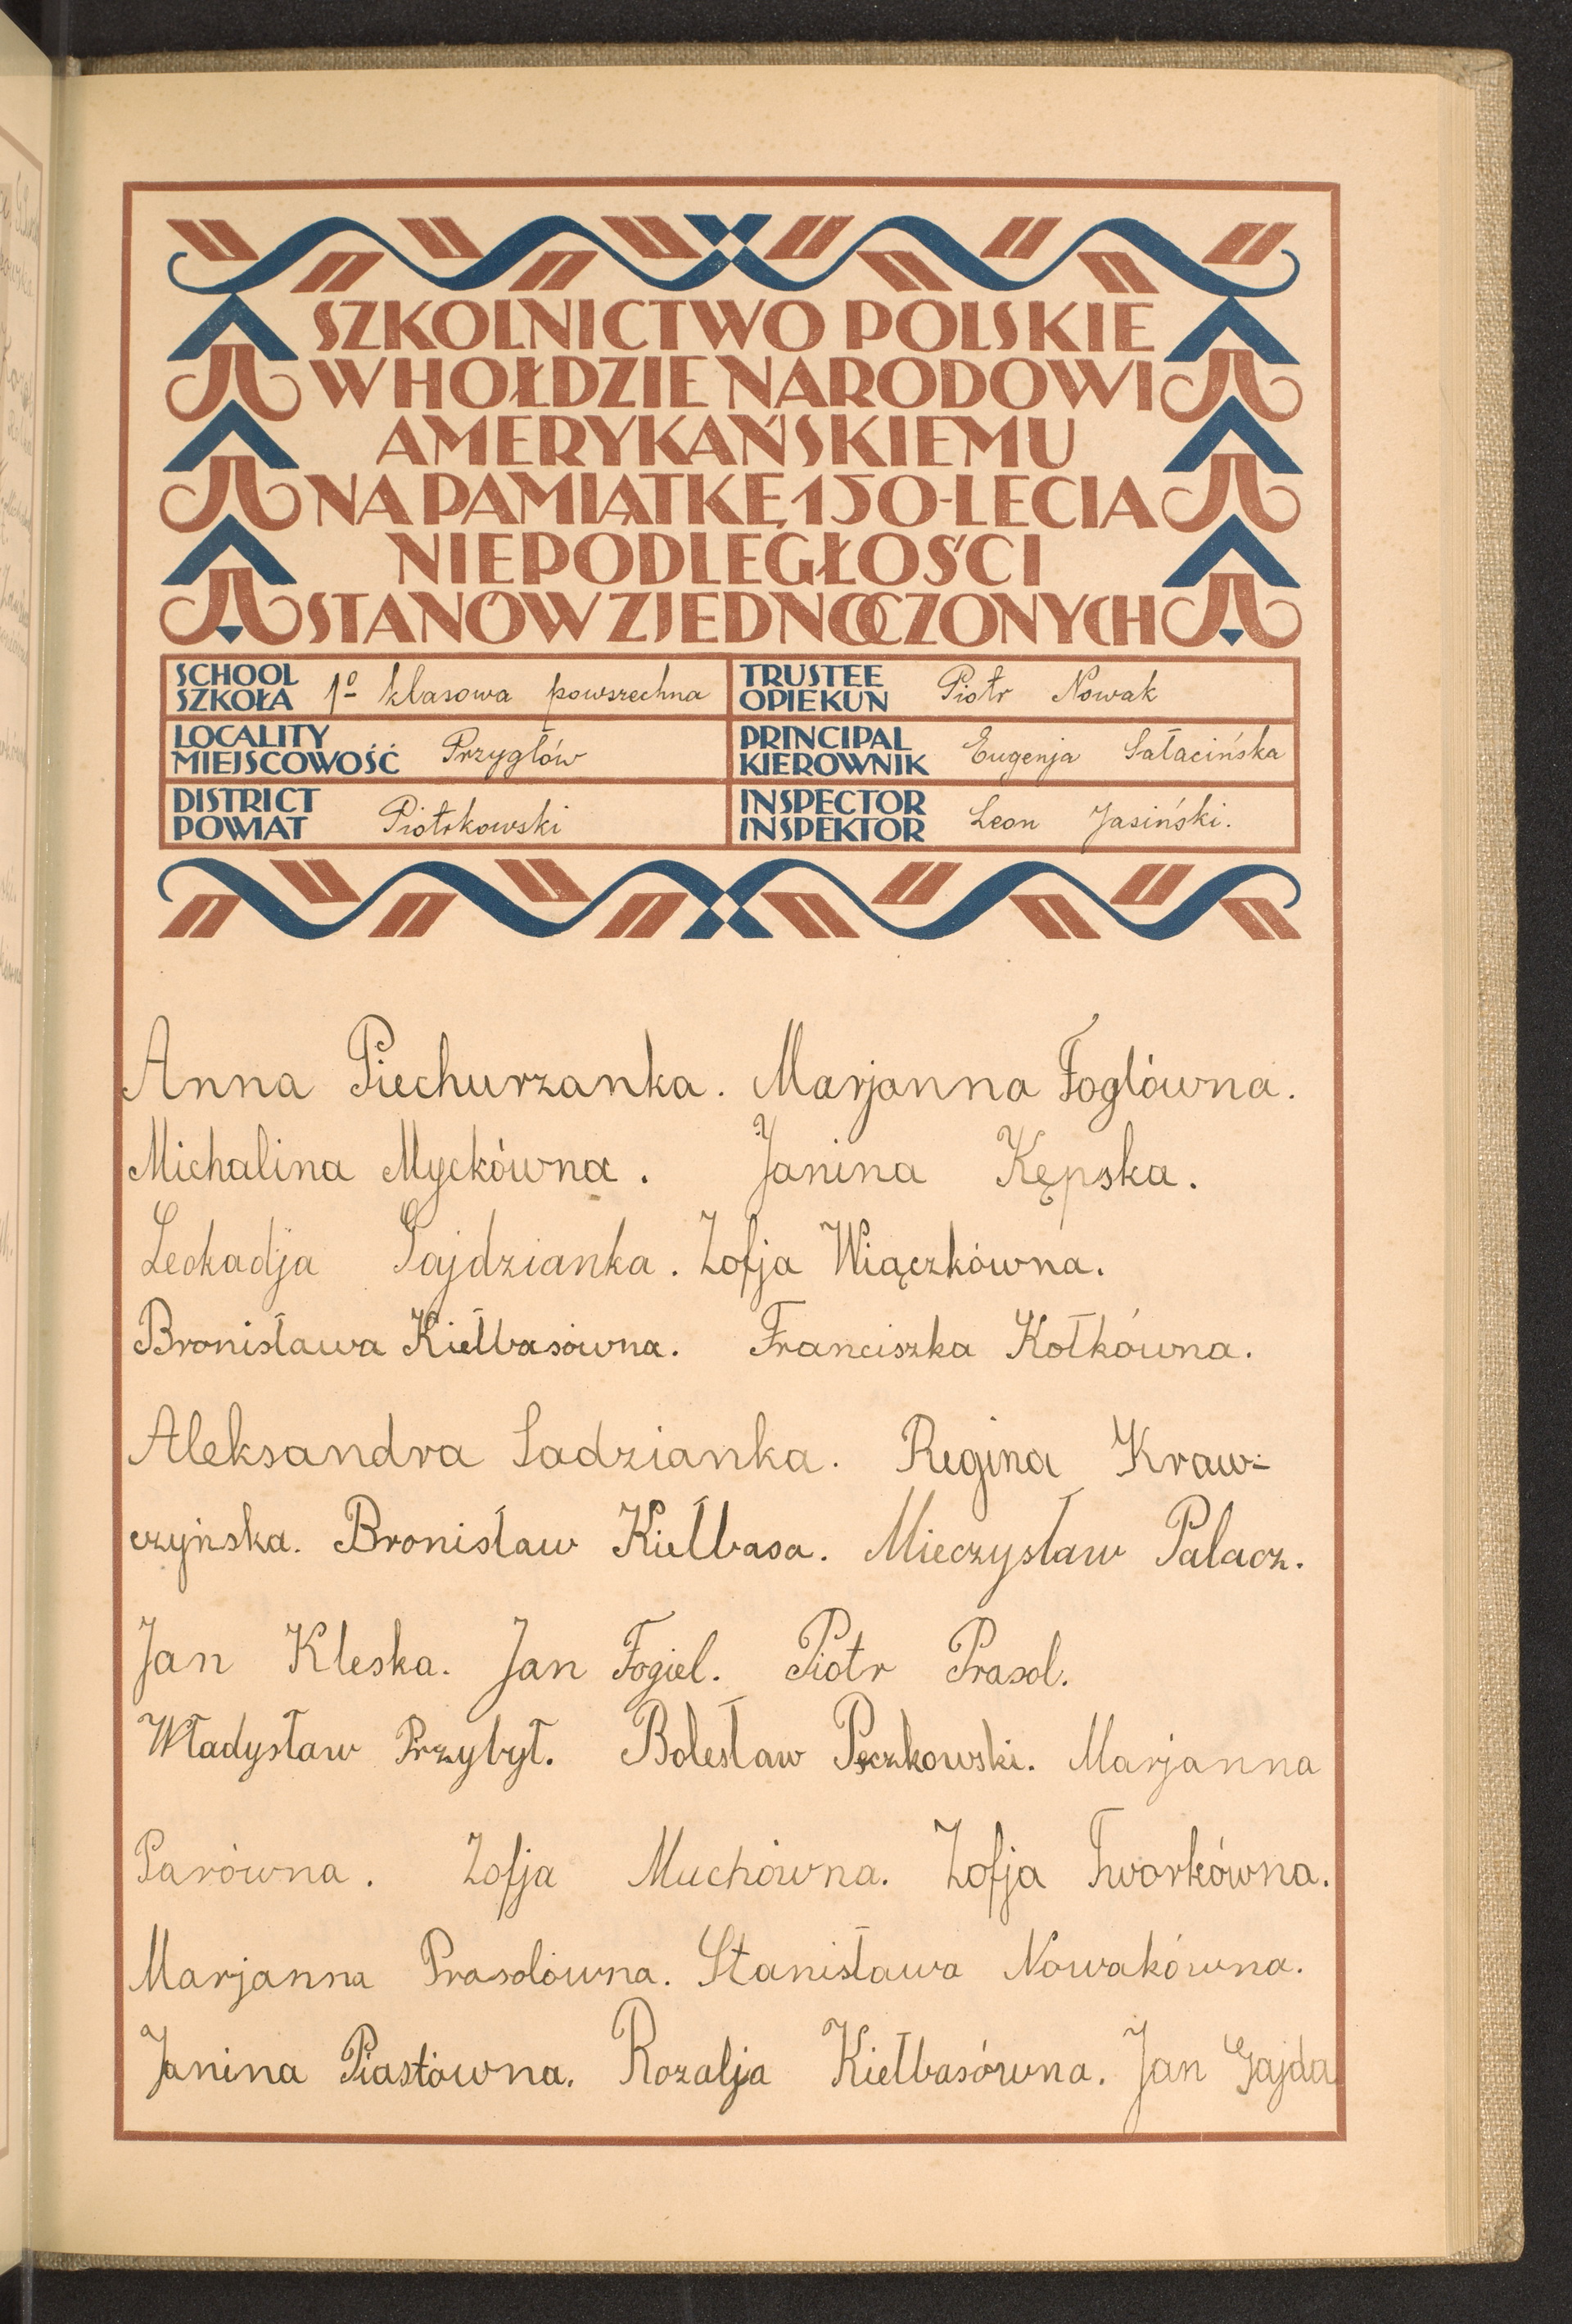 SZKOLNICTWO POLSKIE
W HOŁDZIE NARODOWI
AMERYKAŃSKIEMU
NA PAMIĄTKĘ 150-LECIA
NIEPODLEGŁOŚCI
STANÓW ZJEDNOCZONYCH
SCHOOL
SZKOŁA 1º klasowa powszechna
TRUSTEE
OPIEKUN Piotr Nowak
LOCALITY
MIEJSCOWOŚĆ Przygłów
PRINCIPAL
KIEROWNIK Eugenja Sałacińska
DISTRICT
POWIAT Piotrkowski
INSPECTOR
INSPEKTOR Leon Jasiński.
Anna Piechurzanka. Marjanna Foglówna.
Michalina Myckówna. Janina Kępska.
Leokadja Gajdzianka. Zofja Wiączkówna.
Bronisława Kiełbasówna. Franciszka Kołkówna.
Aleksandra Sadzianka. Regina Kraw-
czyńska. Bronisław Kiełbasa. Mieczysław Palacz.
Jan Kleska. Jan Fogiel. Piotr Prasol.
Władysław Przybył. Bolesław Pęczkowski. Marjanna
Parówna. Zofja Muchówna. Zofja Tworkówna.
Marjanna Prasolówna. Stanisława Nowakówna.
Janina Piastówna. Rozalja Kiełbasówna. Jan Gajda